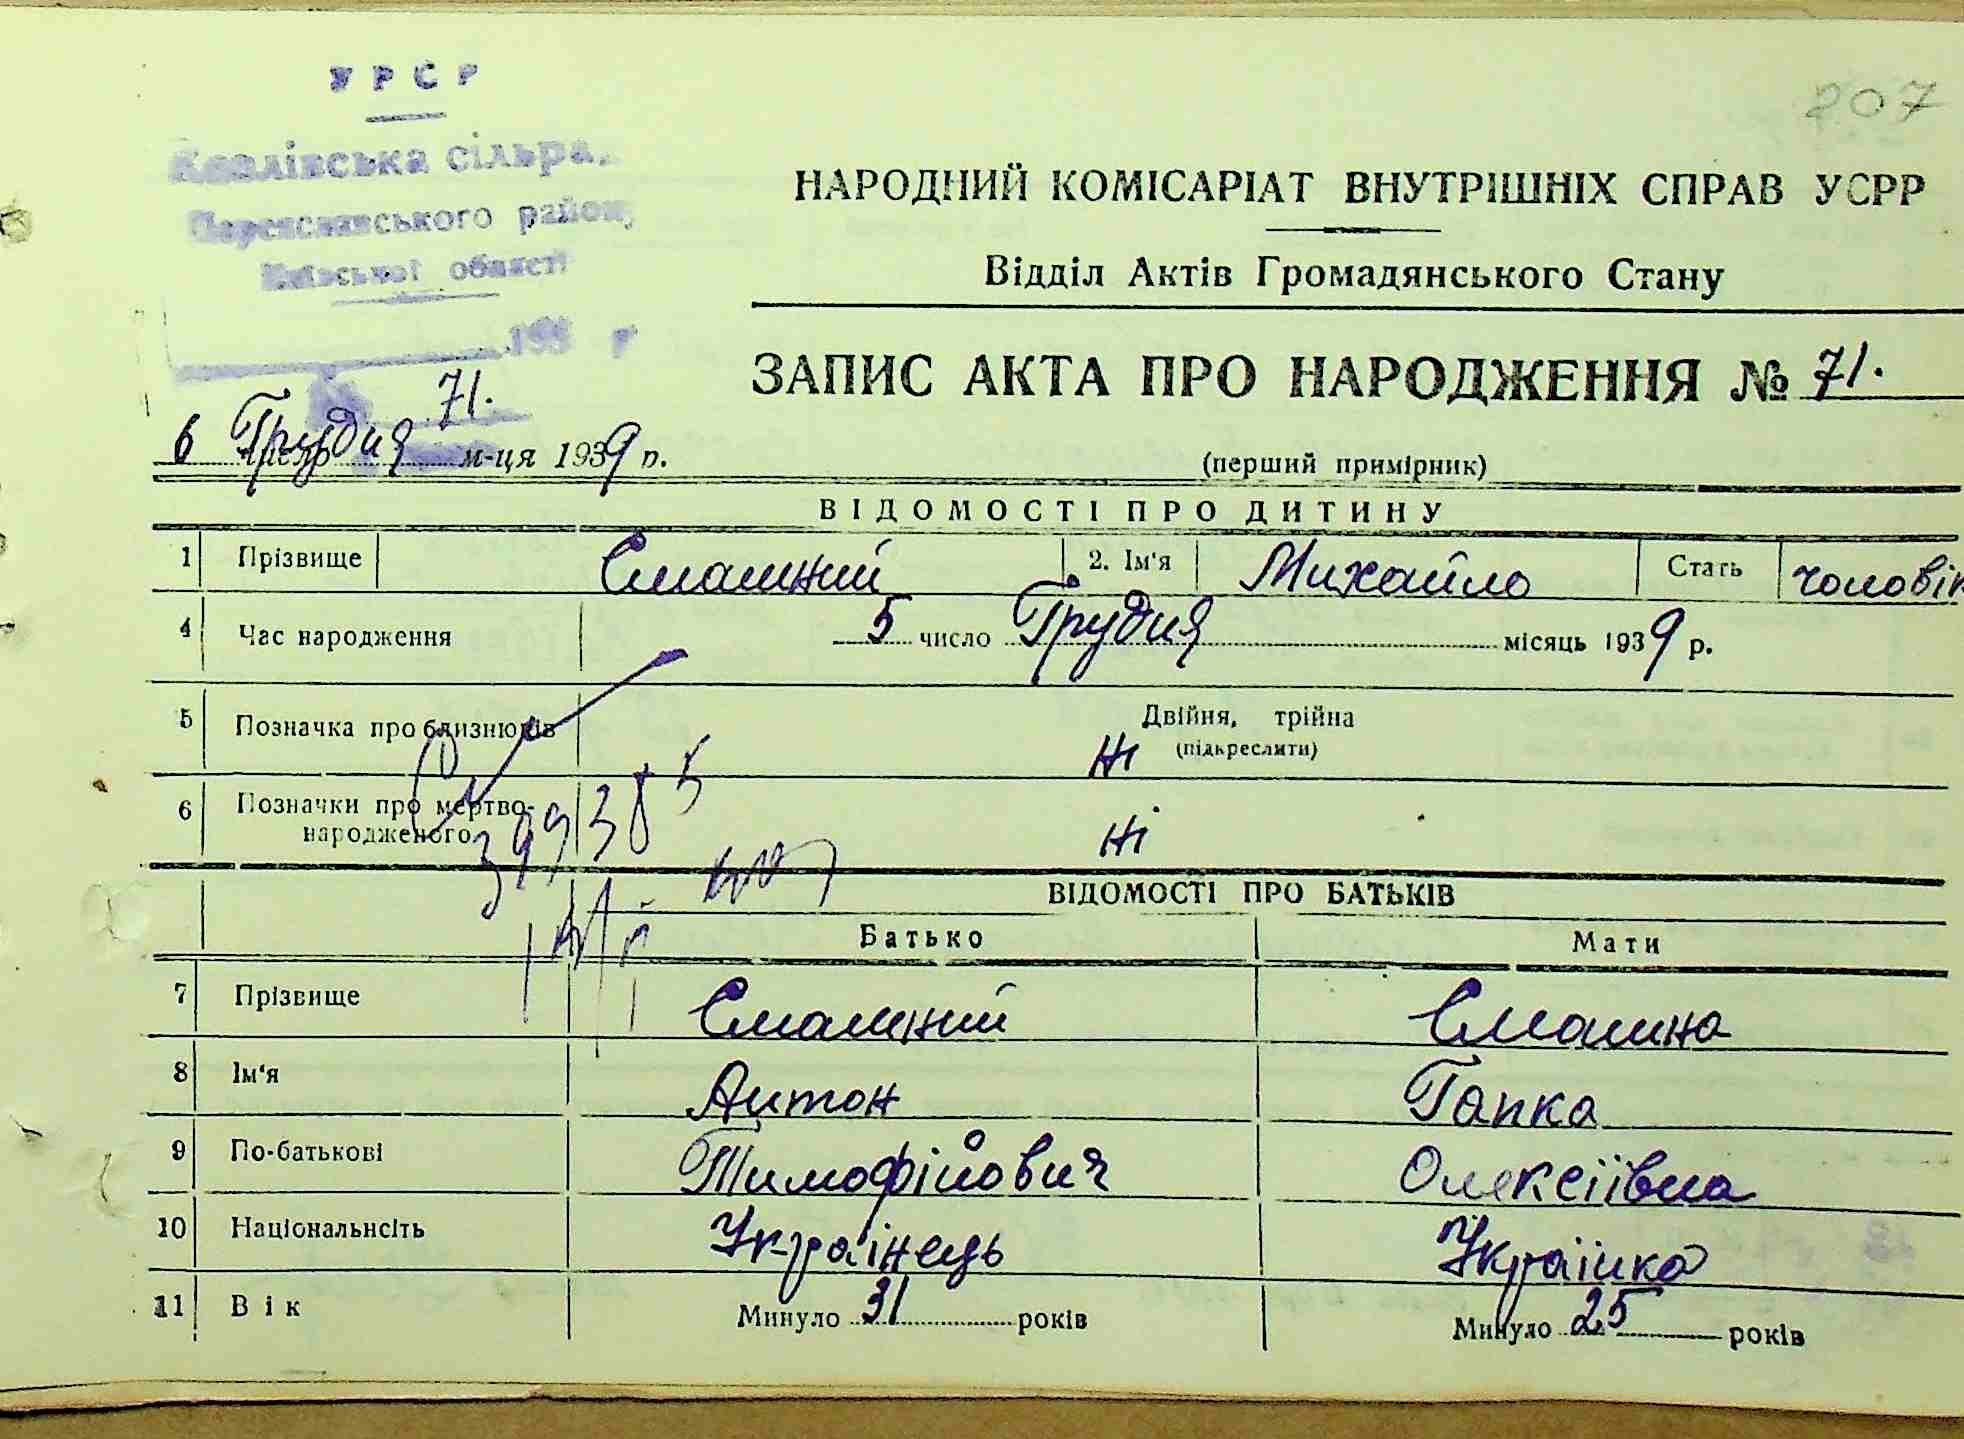 УРСР
207
сільра
Переяславського району
Київської області
193 р
НАРОДНИЙ КОМІСАРІАТ ВНУТРІШНІХ СПРАВ УСРР
Відділ Актів Громадянського Стану
ЗАПИС АКТА ПРО НАРОДЖЕННЯ № 71.
71.
6 Грудня м-ця 1939 р.
(перший примірник)
ВІДОМОСТІ ПРО ДИТИНУ
1 Прізвище Смашний 2. Ім'я Михайло Стать чоловік
4 Час народження 5 число Грудня місяць 1939 р.
5 Позначка про близнюків Двійня, трійна
(підкреслити)
Ні
6 Позначки про мертво-
народженого Ні
399385
ВІДОМОСТІ ПРО БАТЬКІВ
Батько Мати
7 Прізвище Смашний Смашна
8 Ім'я Антон Гапка
9 По-батькові Тимофійович Олексіївна
10 Національнсіть Українець Українка
11 Вік Минуло 31 років Минуло 25 років